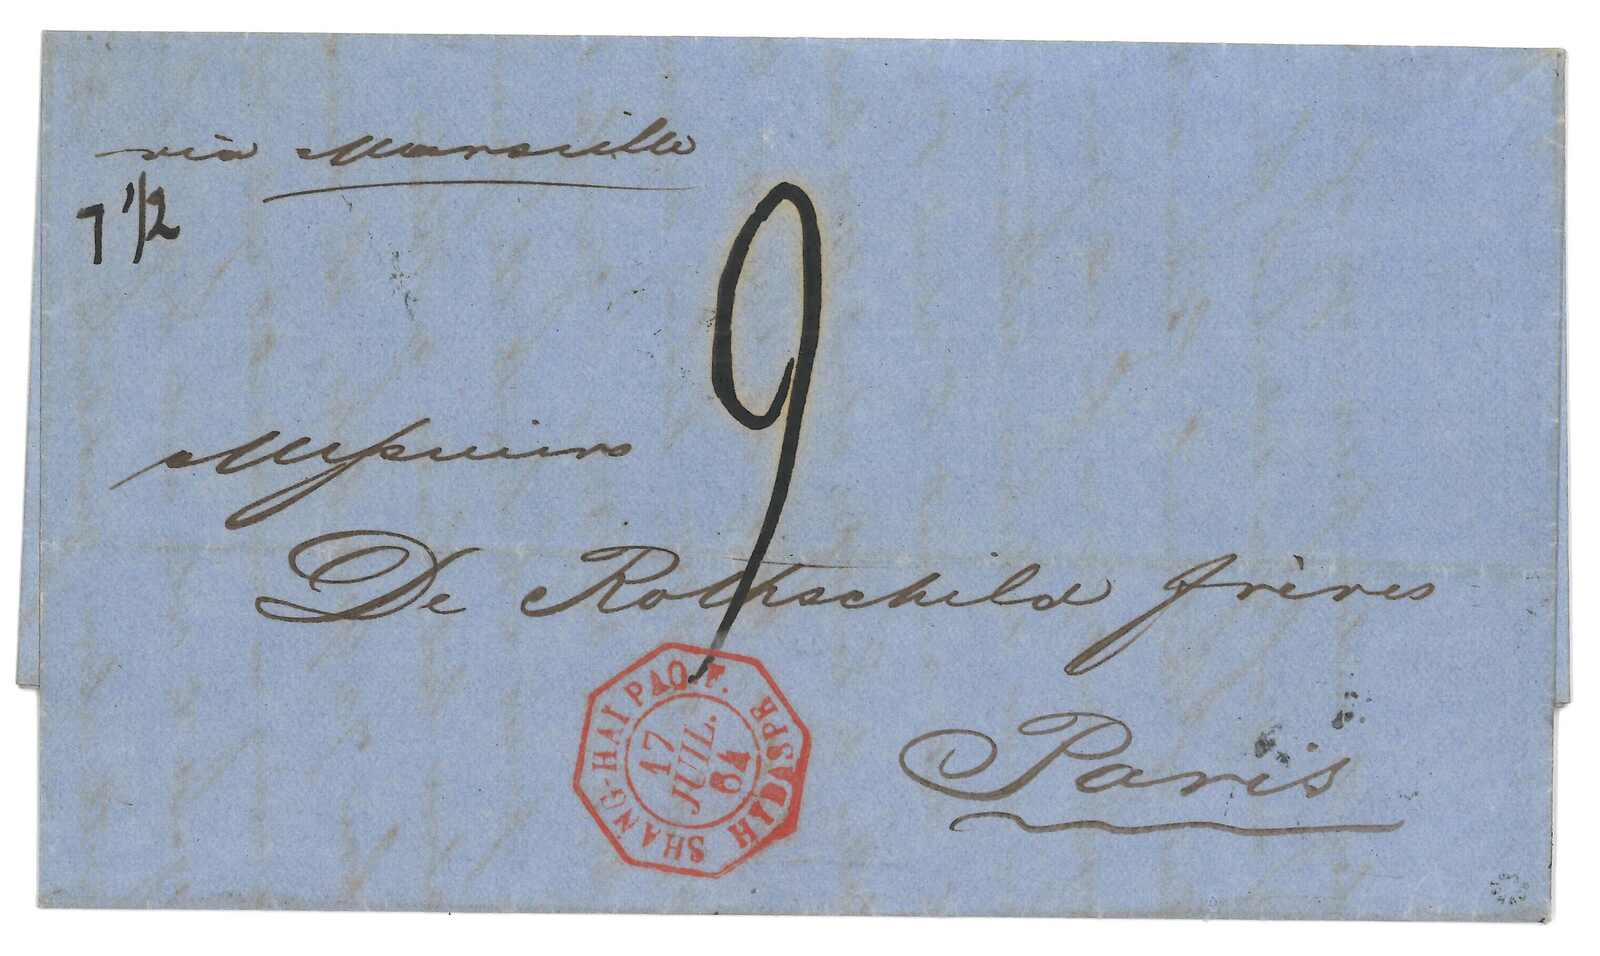 via Marseille
7 1/2
9
Messieurs
De Rothschild frères
Paris
SHANG-HAI PAQ. F. HYDASPE
17
JUIL.
64